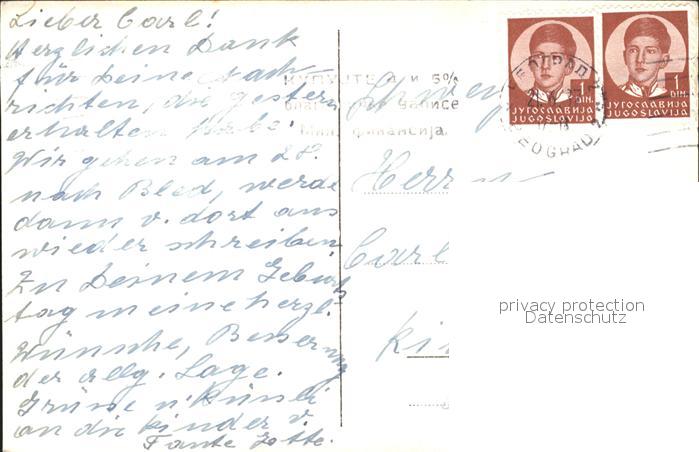 Lieber Carl!
Herzlichen Dank
für Deine Nach-
richten, die gestern
erhalten habe.
Wir gehen am 28.
nach Bled, werde
dann v. dort aus
wieder schreiben.
Zu Deinem Geburts
tag meine herzl.
Wünsche, Besserung
der allg. Lage.
Grüsse u. Küssli
an die Kinder v.
Tante Lotte.
КУПУЈТЕ 4 И 5%
записе
финансија
1
DIN.
ЈУГОСЛАВИЈА
JUGOSLAVIJA
1
DIN.
ЈУГОСЛАВИЈА
JUGOSLAVIJA
BEOGRAD
Herrn
Carl
privacy protection
Datenschutz